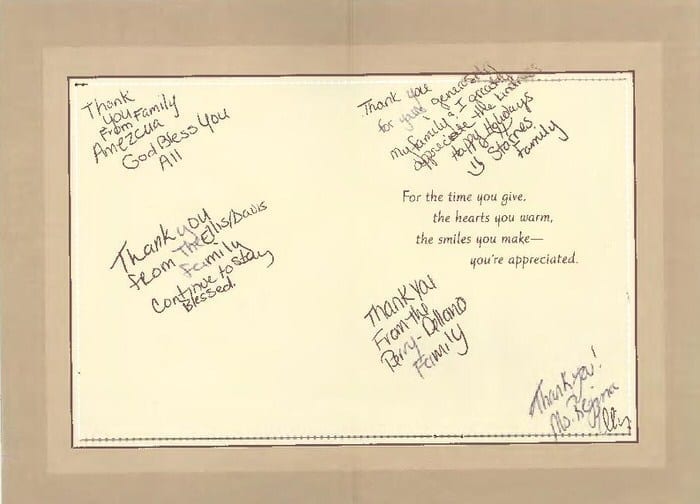 Thank
you
From Family
Amezcua
God Bless you
All
Thank you
for your generosity
my family & I greatly
appreciate the kindness
Happy Holidays
Starnes
Family
For the time you give,
the hearts you warm,
the smiles you make—
you're appreciated.
Thank you
from The Ellis/Davis
Family
Continue to stay
Blessed.
Thank You
From the
Perry-Dellano
Family
Thank you!
Ms. Regina